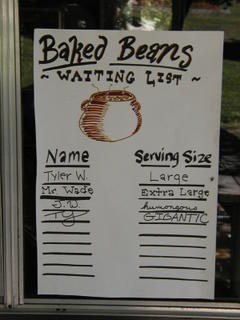 Baked Beans
~ WAITING LIST ~
Name Serving Size
Tyler W. Large
Mr. Wade Extra Large
J.W. humongous
TJ GIGANTIC